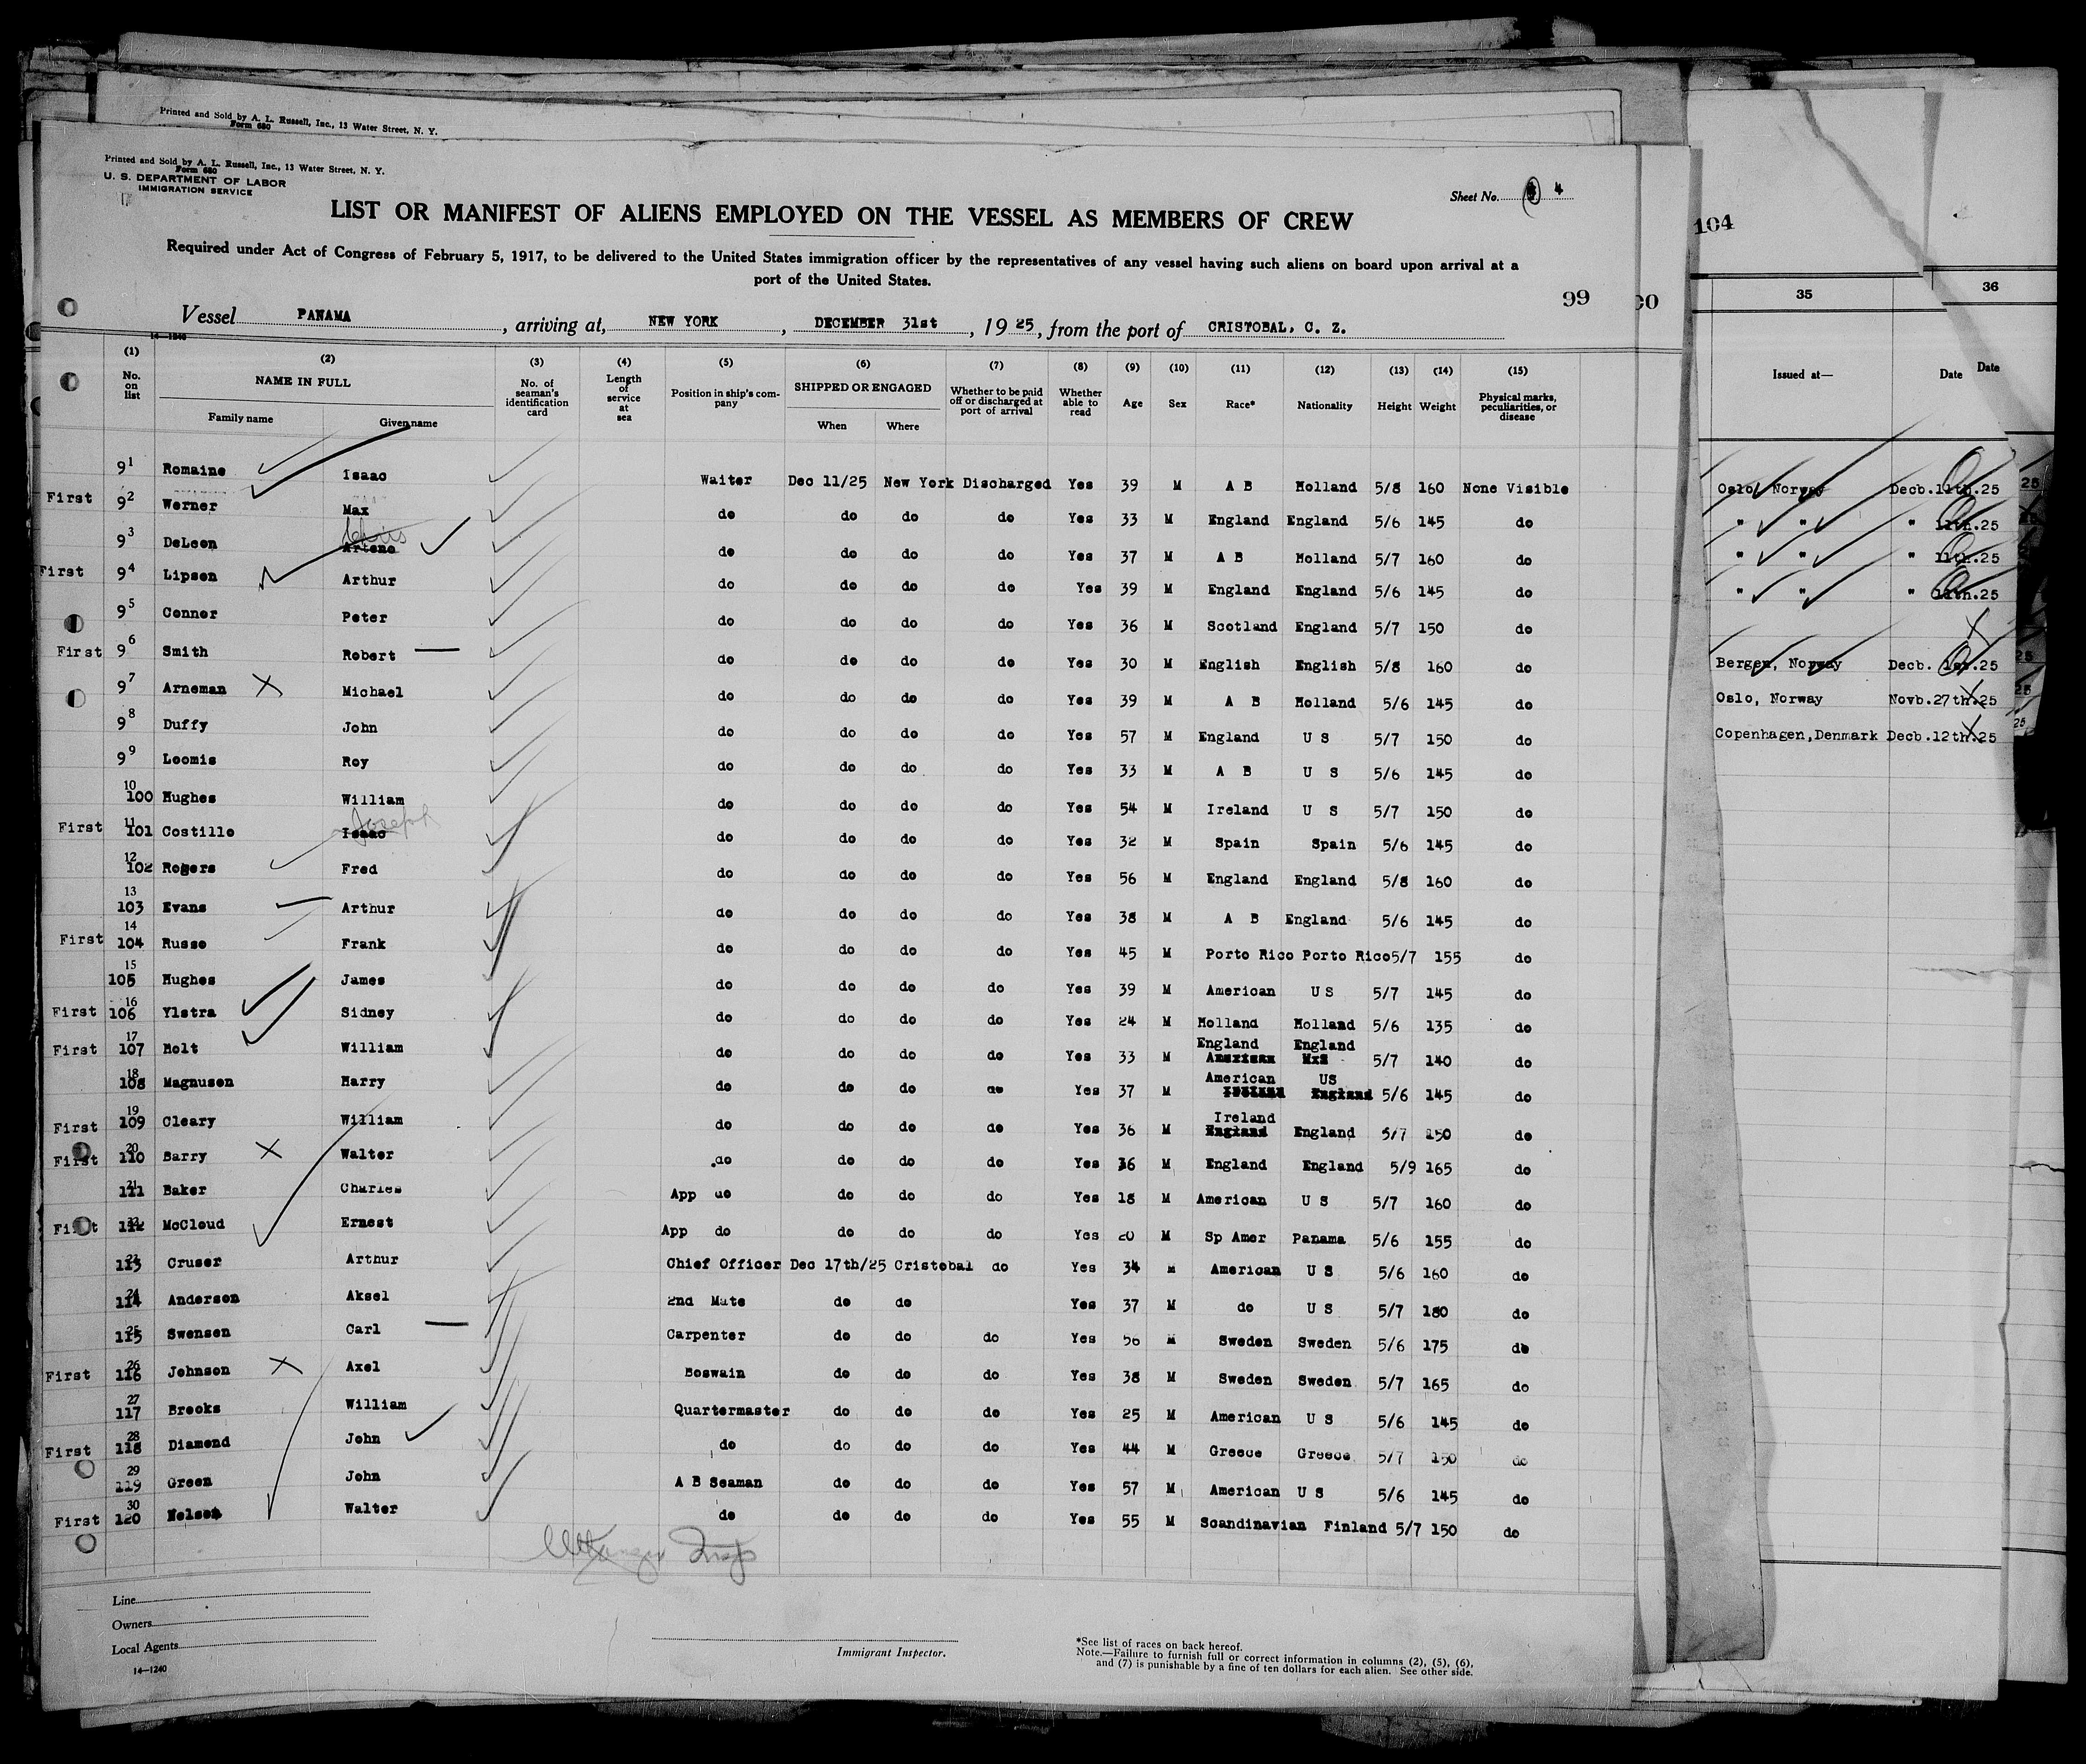 Printed and Sold by A. L. Russell, Inc., 13 Water Street, N. Y.
Form 680
Printed and Sold by A. L. Russell, Inc., 13 Water Street, N. Y.
Form 680
U. S. DEPARTMENT OF LABOR
IMMIGRATION SERVICE
Sheet No. 4
LIST OR MANIFEST OF ALIENS EMPLOYED ON THE VESSEL AS MEMBERS OF CREW
Required under Act of Congress of February 5, 1917, to be delivered to the United States immigration officer by the representatives of any vessel having such aliens on board upon arrival at a
port of the United States.
99
Vessel PANAMA, arriving at, NEW YORK, DECEMBER 31st, 1925, from the port of CRISTOBAL, C. Z.
14—1240
(1) (2) (3) (4) (5) (6) (7) (8) (9) (10) (11) (12) (13) (14) (15)
No. on list NAME IN FULL Family name Given name No. of seaman's identification card Length of service at sea Position in ship's company SHIPPED OR ENGAGED When Where Whether to be paid off or discharged at port of arrival Whether able to read Age Sex Race* Nationality Height Weight Physical marks, peculiarities, or disease
91 Romaine Isaac Waiter Dec 11/25 New York Discharged Yes 39 M A B Holland 5/8 160 None Visible
First 92 Werner Max do do do do Yes 33 M England England 5/6 145 do
Chris
93 DeLeon Arteno do do do do Yes 37 M A B Holland 5/7 160 do
First 94 Lipson Arthur do do do do Yes 39 M England England 5/6 145 do
95 Conner Peter do do do do Yes 36 M Scotland England 5/7 150 do
First 96 Smith Robert do do do do Yes 30 M English English 5/8 160 do
97 Arneman Michael do do do do Yes 39 M A B Holland 5/6 145 do
98 Duffy John do do do do Yes 57 M England U S 5/7 150 do
99 Loomis Roy do do do do Yes 33 M A B U S 5/6 145 do
10
100 Hughes William do do do do Yes 54 M Ireland U S 5/7 150 do
Joseph
11
First 101 Costillo Isaac do do do do Yes 32 M Spain Spain 5/6 145 do
12
102 Rogers Fred do do do do Yes 56 M England England 5/8 160 do
13
103 Evans Arthur do do do do Yes 38 M A B England 5/6 145 do
14
First 104 Russo Frank do do do do Yes 45 M Porto Rico Porto Rico 5/7 155 do
15
105 Hughes James do do do do Yes 39 M American U S 5/7 145 do
16
First 106 Ylstra Sidney do do do do Yes 24 M Holland Holland 5/6 135 do
17 England England
First 107 Holt William do do do do Yes 33 M American 5/7 140 do
18 American US
108 Magnuson Harry do do do do Yes 37 M England 5/6 145 do
19 Ireland
First 109 Cleary William do do do do Yes 36 M England England 5/7 150 do
20
First 110 Barry Walter do do do do Yes 36 M England England 5/9 165 do
21
111 Baker Charles App do do do do Yes 18 M American U S 5/7 160 do
22
First 112 McCloud Ernest App do do do do Yes 20 M Sp Amer Panama 5/6 155 do
23
113 Cruser Arthur Chief Officer Dec 17th/25 Cristobal do Yes 34 M American U S 5/6 160 do
24
114 Anderson Aksel 2nd Mate do do Yes 37 M do U S 5/7 180 do
25
115 Swensen Carl Carpenter do do do Yes 56 M Sweden Sweden 5/6 175 do
26
First 116 Johnson Axel Boswain do do do Yes 38 M Sweden Sweden 5/7 165 do
27
117 Brooks William Quartermaster do do do Yes 25 M American U S 5/6 145 do
28
First 118 Diamond John do do do do Yes 44 M Greece Greece 5/7 150 do
29
119 Green John A B Seaman do do do Yes 57 M American U S 5/6 145 do
30
First 120 Nelson Walter do do do do Yes 55 M Scandinavian Finland 5/7 150 do
Line
Owners
Local Agents
14—1240
Immigrant Inspector.
*See list of races on back hereof.
Note.—Failure to furnish full or correct information in columns (2), (5), (6),
and (7) is punishable by a fine of ten dollars for each alien. See other side.
104
35 36
Issued at— Date Date
Oslo, Norway Decb. 11th.25
" " " 11th.25
" " " 11th.25
" " " 11th.25
Bergen, Norway Decb. 1st.25
Oslo, Norway Novb.27th.25
Copenhagen,Denmark Decb.12th.25